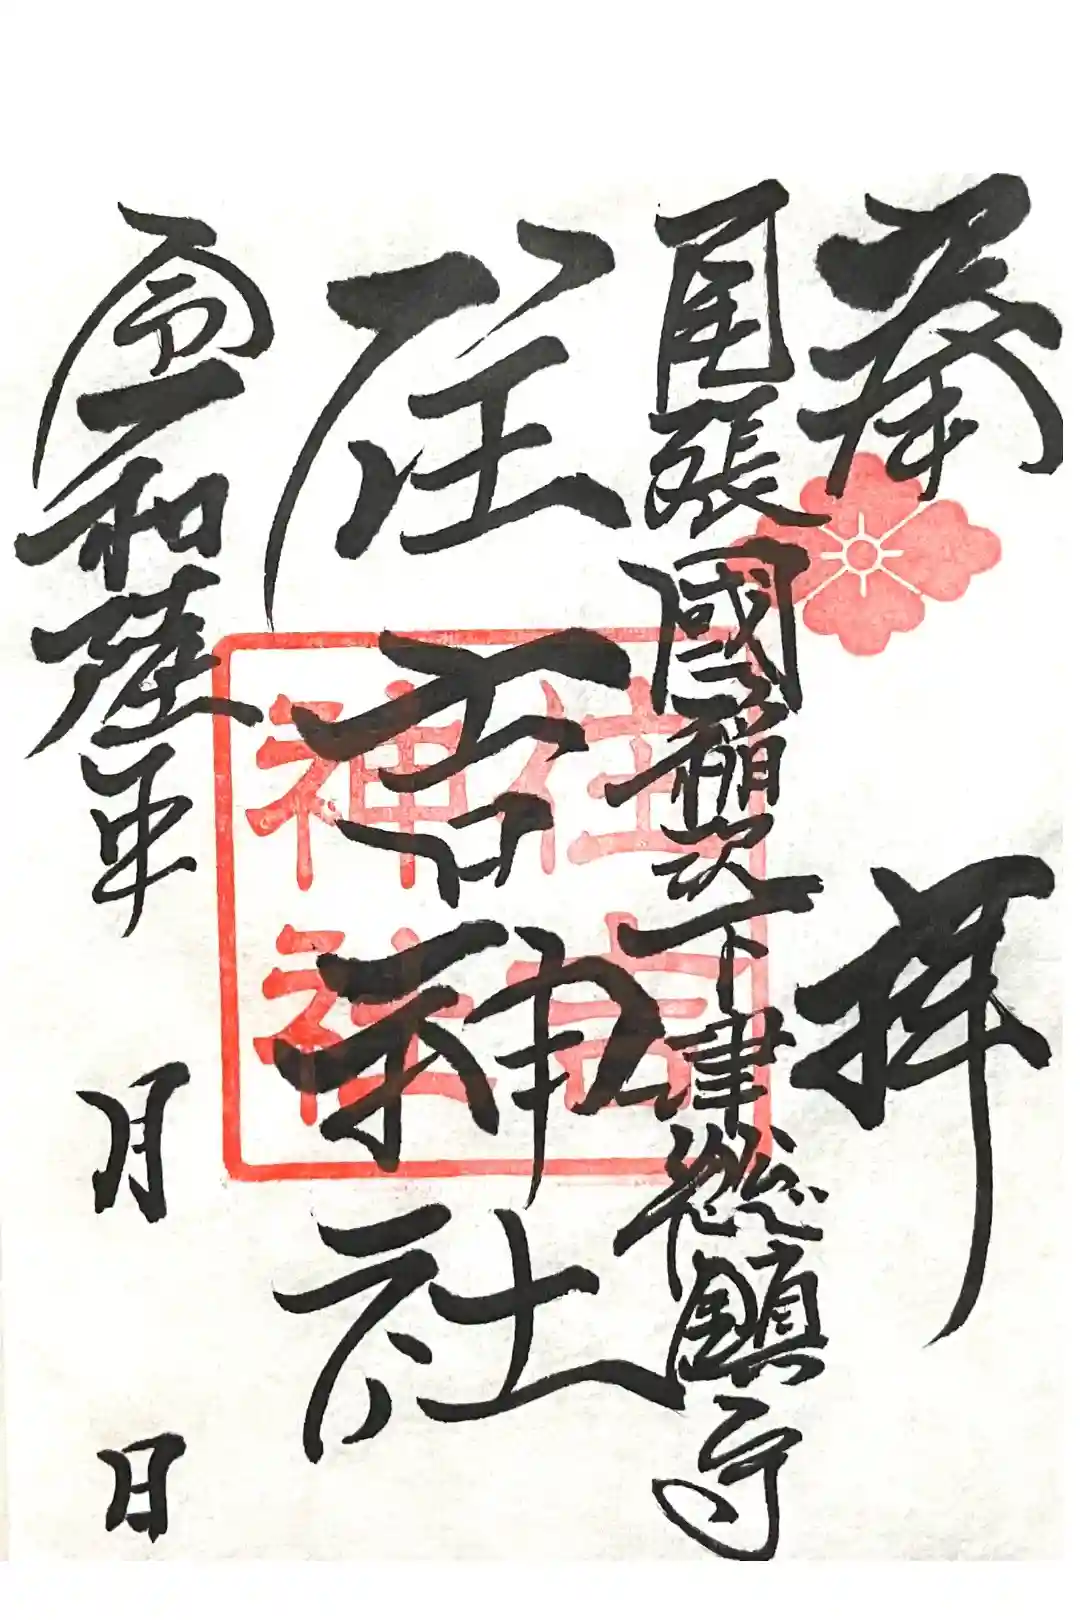 奉拝
尾張國稲沢下津総鎮守
住吉神社
令和陸年 月 日
住吉
神社